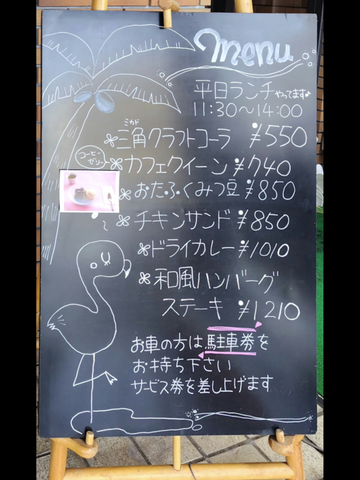 menu
平日ランチやってます♪
11:30〜14:00
ミカド
三角クラフトコーラ ¥550
コーヒーゼリー
カフェクイーン ¥740
おたふくみつ豆 ¥850
チキンサンド ¥850
ドライカレー ¥1010
和風ハンバーグ
ステーキ ¥1210
お車の方は駐車券を
お持ち下さい
サービス券を差し上げます